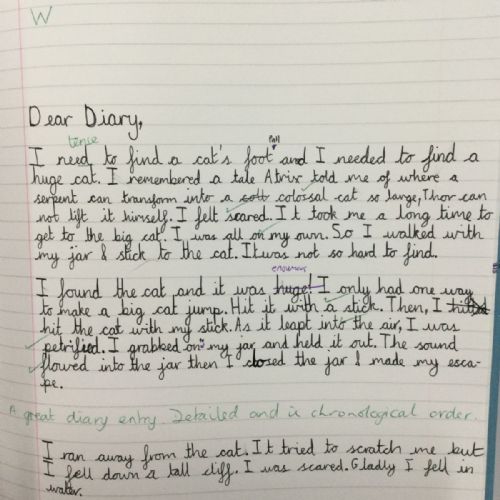 W
Dear Diary,
tence
fall
I need to find a cat's foot and I needed to find a
huge cat. I remembered a tale Atrix told me of where a
serpent can transform into a colossal cat so large, Thor can
not lift it himself. I felt scared. It took me a long time to
get to the big cat. I was all on my own. So I walked with
my jar & stick to the cat. It was not so hard to find.
enourmous
I found the cat and it was huge! I only had one way
to make a big cat jump. Hit it with a stick. Then, I
hit the cat with my stick. As it leapt into the air, I was
petrified. I grabbed on my jar and held it out. The sound
flowed into the jar then I closed the jar & made my esca-
pe.
A great diary entry. Detailed and in chronological order.
I ran away from the cat. It tried to scratch me but
I fell down a tall cliff. I was scared. Gladly I fell in
water.